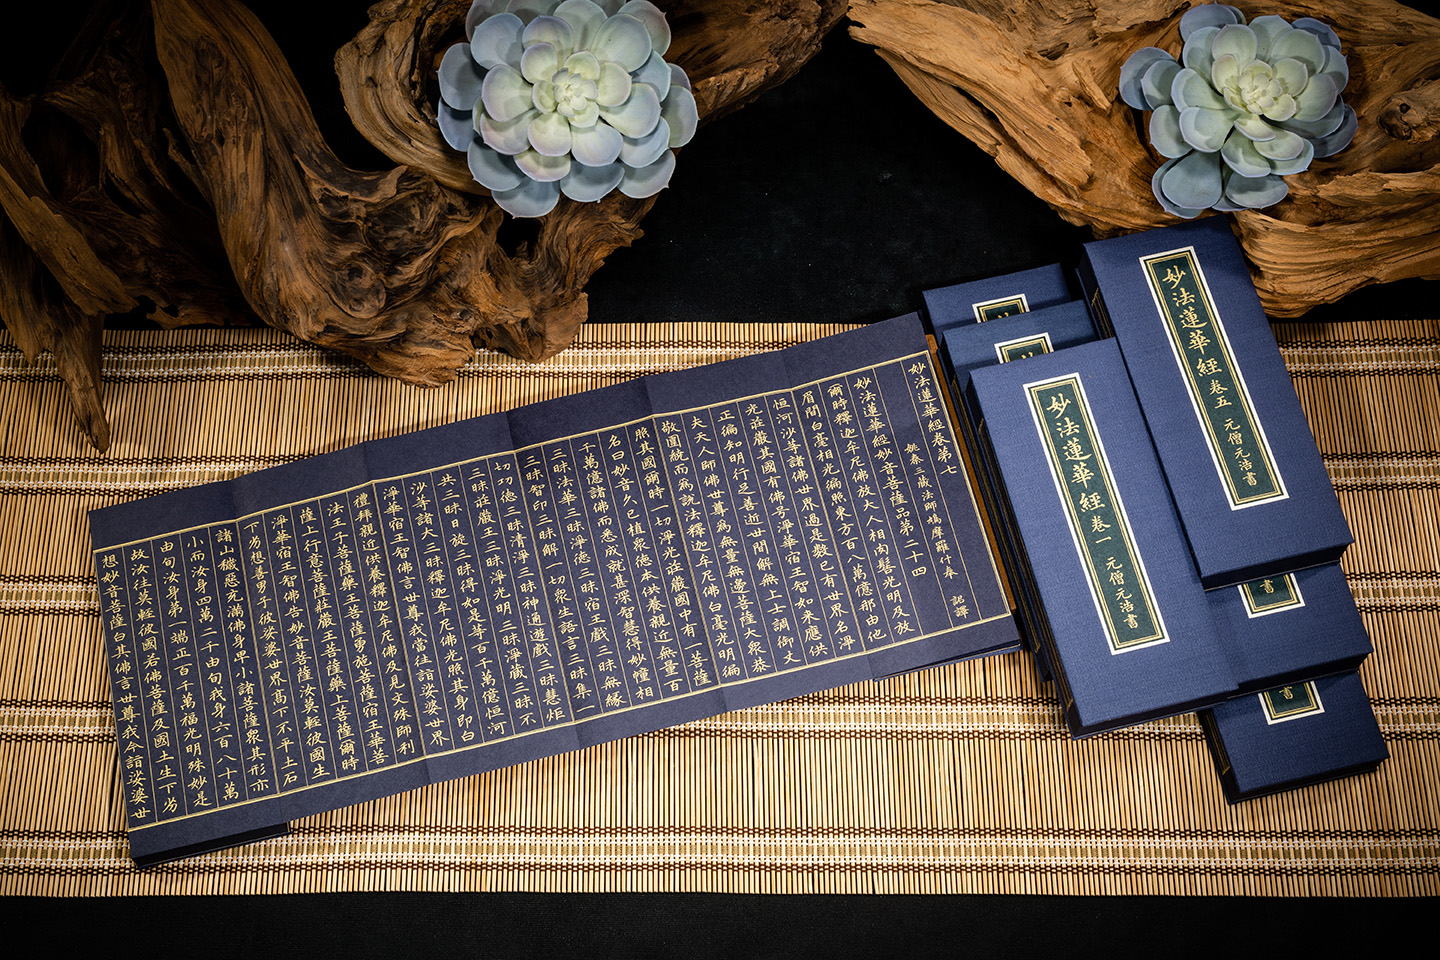 妙法蓮華經卷五 元僧元浩書
妙法蓮華經卷一 元僧元浩書
書
書
妙法蓮華經卷第七
姚秦三藏法師鳩摩羅什奉 詔譯
妙法蓮華經妙音菩薩品第二十四
爾時釋迦牟尼佛放大人相肉髻光明及放
眉間白毫相光徧照東方百八萬億那由他
恒河沙等諸佛世界過是數已有世界名淨
光莊嚴其國有佛号淨華宿王智如來應供
正徧知明行足善逝世間解無上士調御丈
夫天人師佛世尊為無量無邊菩薩大眾恭
敬圍繞而為說法釋迦牟尼佛白毫光明徧
照其國爾時一切淨光莊嚴國中有一菩薩
名曰妙音久已植眾德本供養親近無量百
千萬億諸佛而悉成就甚深智慧得妙幢相
三昧法華三昧淨德三昧宿王戲三昧無緣
三昧智印三昧解一切眾生語言三昧集一
切功德三昧清淨三昧神通遊戲三昧慧炬
三昧莊嚴王三昧淨光明三昧淨藏三昧不
共三昧日旋三昧得如是等百千萬億恒河
沙等諸大三昧釋迦牟尼佛光照其身即白
淨華宿王智佛言世尊我當往詣娑婆世界
禮拜親近供養釋迦牟尼佛及見文殊師利
法王子菩薩藥王菩薩勇施菩薩宿王華菩
薩上行意菩薩莊嚴王菩薩藥上菩薩爾時
淨華宿王智佛告妙音菩薩汝莫輕彼國生
下劣想善男子彼娑婆世界高下不平土石
諸山穢惡充滿佛身卑小諸菩薩眾其形亦
小而汝身四萬二千由旬我身六百八十萬
由旬汝身第一端正百千萬福光明殊妙是
故汝往莫輕彼國若佛菩薩及國土生下劣
想妙音菩薩白其佛言世尊我今詣娑婆世